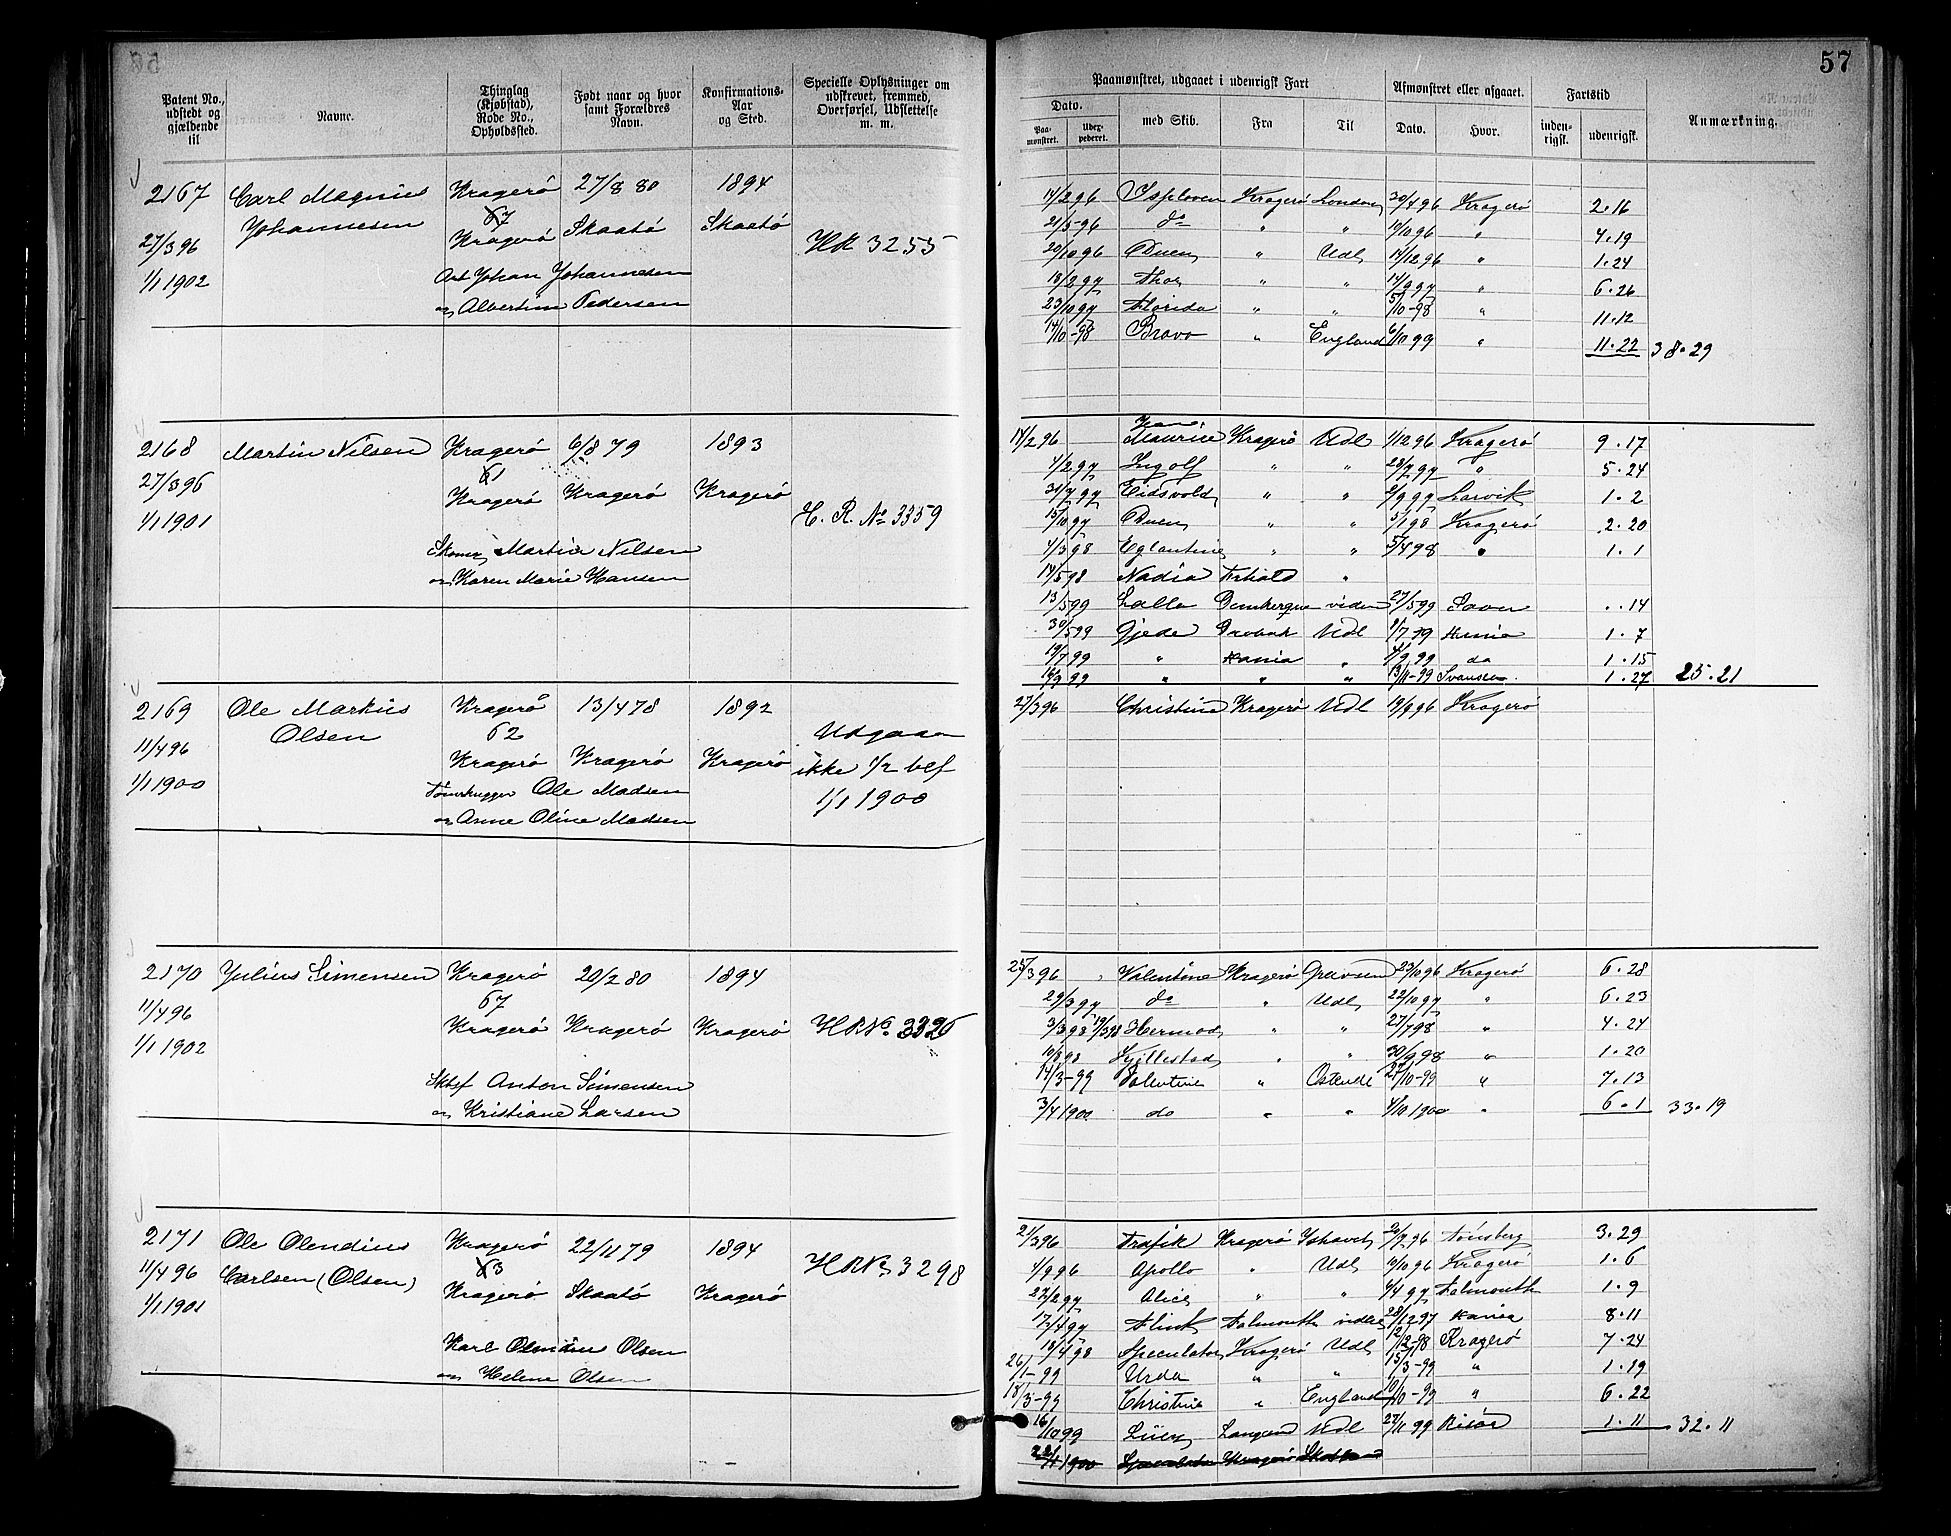 57
Patent No., udstedt og gjældende til
Navne.
Thinglag (Kjøbstad), Rode No., Opholdssted.
Født naar og hvor samt Forældres Navn.
Konfirmations-Aar og Sted.
Specielle Oplysninger om udskrevet, fremmed, Overførsel, Udslettelse m. m.
Paamønstret, udgaaet i udenrigsk Fart
Afmønstret eller afgaaet.
Fartstid
Dato. med Skib. Fra Til Dato. Hvor. inden-rigsk. udenrigsk. Anmærkning.
Paa-mønstret. Udex-pederet.
2167 Carl Magnus Kragerø 27/8 80 1894
Johannesen 67
27/3 96 Kragerø Skaatø Skaatø HR 3255
1/1 1902 Johan Johannesen
og Albertine Pedersen
14/2 96 Isfloven Kragerø London 30/4 96 Kragerø 2.16
21/5-96 do " " 10/10 96 " 4.19
20/10 96 Duen " Udl 14/12 96 " 1.24
18/2 97 Thor " " 14/9 97 " 6.26
23/10 97 Florida " " 5/10-98 " 11.12
14/10-98 Bravo " England 6/10 99 " 11.22 38.29
2168 Martin Nilsen Kragerø 6/8 79 1893
27/3 96 61
1/1 1901 Kragerø Kragerø Kragerø H. R. No 3359
Skom. Martin Nilsen
og Karen Marie Hansen
14/2 96 Maurice Kragerø Udl 1/12 96 Kragerø 9.17
4/2 97 Ingolf " " 28/7 97 " 5.24
31/7 97 Eidsvold " " 2/9 97 Larvik 1.2
15/10 97 Duen " " 5/1 98 Kragerø 2.20
4/3 98 Eglantine " " 5/4 98 " 1.1
14/5 98 Nadia "
13/5 99 Lalla viden 27/5 99 .14
30/5 99 Gjede Udl 7 99 1.7
19/7 99 " Kania " 4/9 99 do 1.15
9 99 " " " 13/11-99 Svansea 1.27 25.21
2169 Ole Markus Kragerø 13/4 78 1892
Olsen 62 Udgaar
11/4 96 Kragerø Kragerø Kragerø ikke 1/2 bef
1/1 1900 Tømthugger Ole Madsen 1/1 1900
og Anne Oline Madsen
27/3 96 Christine Kragerø Udl 19/9 96 Kragerø
2170 Julius Simensen Kragerø 20/2 80 1894
11/4 96 67
1/1 1902 Kragerø Kragerø Kragerø HR No. 3326
Anton Simensen
og Kristiane Larsen
25/3 96 Valentine Kragerø 23/10 96 Kragerø 6.28
29/3 97 do " Udl 22/10 97 " 6.23
3/3 98 19/3 98 Hermod " " 27/7 98 " 4.24
10/8 98 Kjillestad " " 30/9 98 " 1.20
14/3-99 Valentine " Ostende 27/10-99 " 7.13
3/4 1900 do " " 4/10 1900 " 6.1 33.19
2171 Ole Olendius Kragerø 22/11 79 1894
11/4 96 Carlsen (Olsen) 63 HR No. 3298
1/1 1901 Kragerø Skaatø Kragerø
Karl Olendius Olsen
og Helene Olsen
21/3 96 Trafik Kragerø 20/7 96 Tønsberg 3.29
4/9 96 Apollo " Udl 10/10 96 Kragerø 1.6
27/2 97 Alice " " 6/4 97 Falmouth 1.9
17/4 97 Flink Falmouth videre 28/12 97 Kania 8.11
18/4 98 Speculator Kragerø Udl 12/12-98 Kragerø 7.24
26/1-99 Urda " " 15/3-99 " 1.19
18/3-99 Christine " England 10/10-99 " 6.22
16/10 99 Langesund Udl 27/11 99 Risør 1.11 32.11
1900 Speculator Kragerø